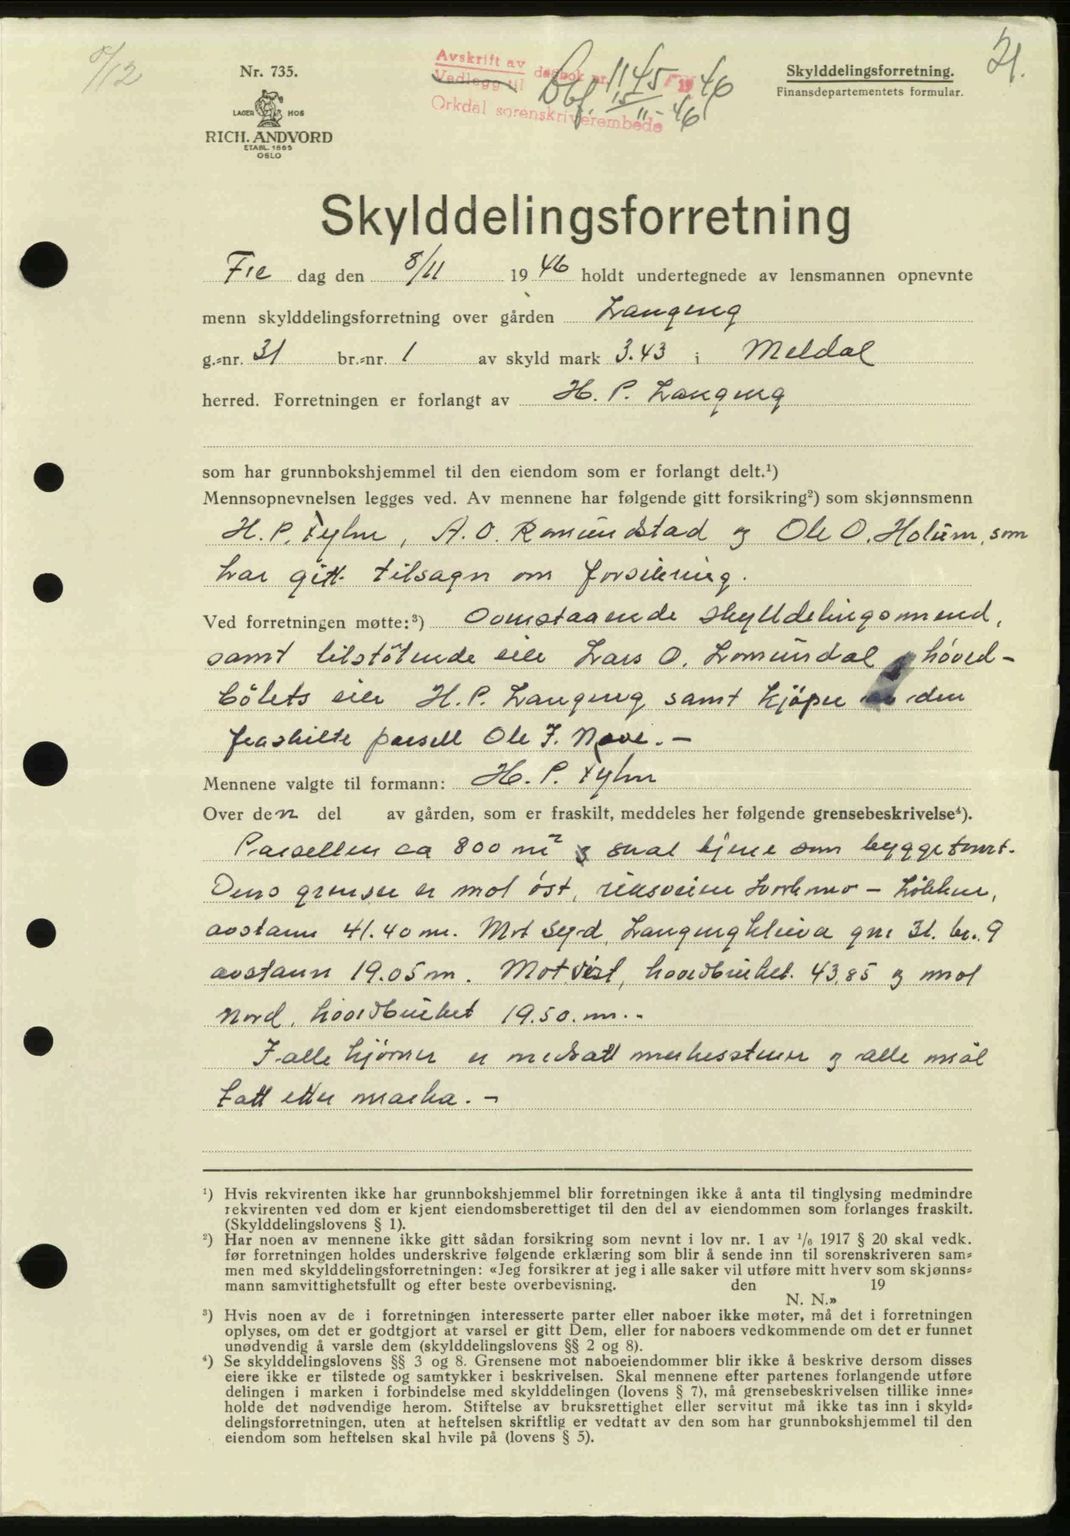 5/12
Nr. 735.
LAGER HOS
RICH. ANDVORD
ETABL. 1865
OSLO
Avskrift av
Vedlegg til dagbok nr. 1145 1946
Dbf. 15/11-46
Orkdal sorenskriverembede
Skylddelingsforretning.
Finansdepartementets formular.
21.
Skylddelingsforretning
Fre dag den 8/11 1946 holdt undertegnede av lensmannen opnevnte
menn skylddelingsforretning over gården Langeng
g.-nr. 31 br.-nr. 1 av skyld mark 3.43 i Meldal
herred. Forretningen er forlangt av H. P. Langeng
som har grunnbokshjemmel til den eiendom som er forlangt delt.¹)
Mennsopnevnelsen legges ved. Av mennene har følgende gitt forsikring²) som skjønnsmenn
H. P. Tyhn, A. O. Romundstad og Ole O. Holum, som
har gitt tilsagn om forsikring.
Ved forretningen møtte:³) Ovenstaaende skylldelingsmend,
samt tilstötende eier Lars O. Lomundal, hoved-
bölets eier H. P. Langeng samt kjöper av den
fraskilte parsell Ole J. Move. -
Mennene valgte til formann: H. P. Tyhn
Over den del av gården, som er fraskilt, meddeles her følgende grensebeskrivelse⁴).
Parsellen ca 800 m² skal tjene som byggetomt.
Dens grenser er mot öst, riksveien Storås - Lökken,
avstann 41.40 m. Mot Syd, Langengkleiva gnr 31. br. 9
avstann 19.05 m. Mot vest, hovedbruket. 43,85 og mot
Nord, hovedbruket 19.50. m. -
I alle hjörner er nedsatt merkesteiner og alle mål
tatt etter marka. -
¹) Hvis rekvirenten ikke har grunnbokshjemmel blir forretningen ikke å anta til tinglysing medmindre
rekvirenten ved dom er kjent eiendomsberettiget til den del av eiendommen som forlanges fraskilt.
(Skylddelingslovens § 1).
²) Har noen av mennene ikke gitt sådan forsikring som nevnt i lov nr. 1 av ¹/₆ 1917 § 20 skal vedk.
før forretningen holdes underskrive følgende erklæring som blir å sende inn til sorenskriveren sam-
men med skylddelingsforretningen: «Jeg forsikrer at jeg i alle saker vil utføre mitt hverv som skjønns-
mann samvittighetsfullt og efter beste overbevisning. den 19
N. N.»
³) Hvis noen av de i forretningen interesserte parter eller naboer ikke møter, må det i forretningen
oplyses, om det er godtgjort at varsel er gitt Dem, eller for naboers vedkommende om det er funnet
unødvendig å varsle dem (skylddelingslovens §§ 2 og 8).
⁴) Se skylddelingslovens §§ 3 og 8. Grensene mot naboeiendommer blir ikke å beskrive dersom disses
eiere ikke er tilstede og samtykker i beskrivelsen. Skal mennene efter partenes forlangende utføre
delingen i marken i forbindelse med skylddelingen (lovens § 7), må grensebeskrivelsen tillike inne-
holde det nødvendige herom. Stiftelse av bruksrettighet eller servitut må ikke tas inn i skyld-
delingsforretningen, uten at heftelsen skriftlig er vedtatt av den som har grunnbokshjemmel til den
eiendom som heftelsen skal hvile på (lovens § 5).